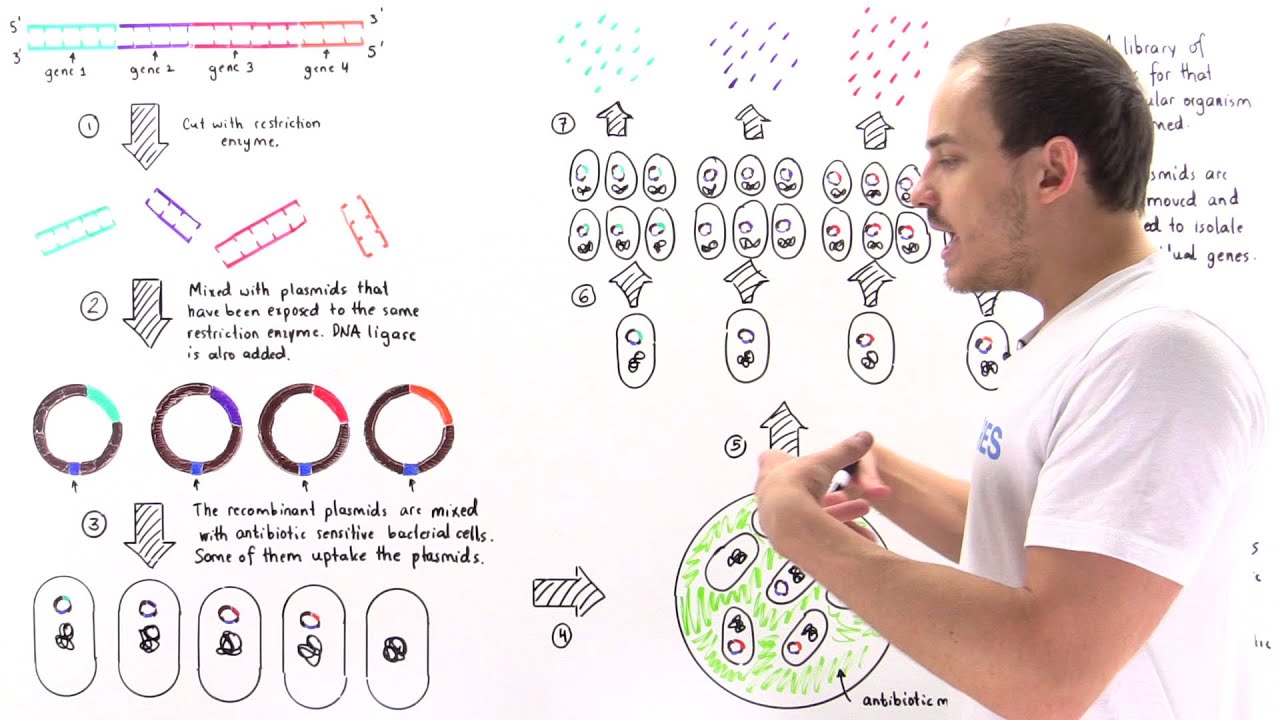 5' 3'
3' 5'
gene 1 gene 2 gene 3 gene 4
1 Cut with restriction
enzyme.
2 Mixed with plasmids that
have been exposed to the same
restriction enzyme. DNA ligase
is also added.
3 The recombinant plasmids are mixed
with antibiotic sensitive bacterial cells.
Some of them uptake the plasmids.
4
A library of
for that
organism
7
are
and
to isolate
genes.
6
5
antibiotic